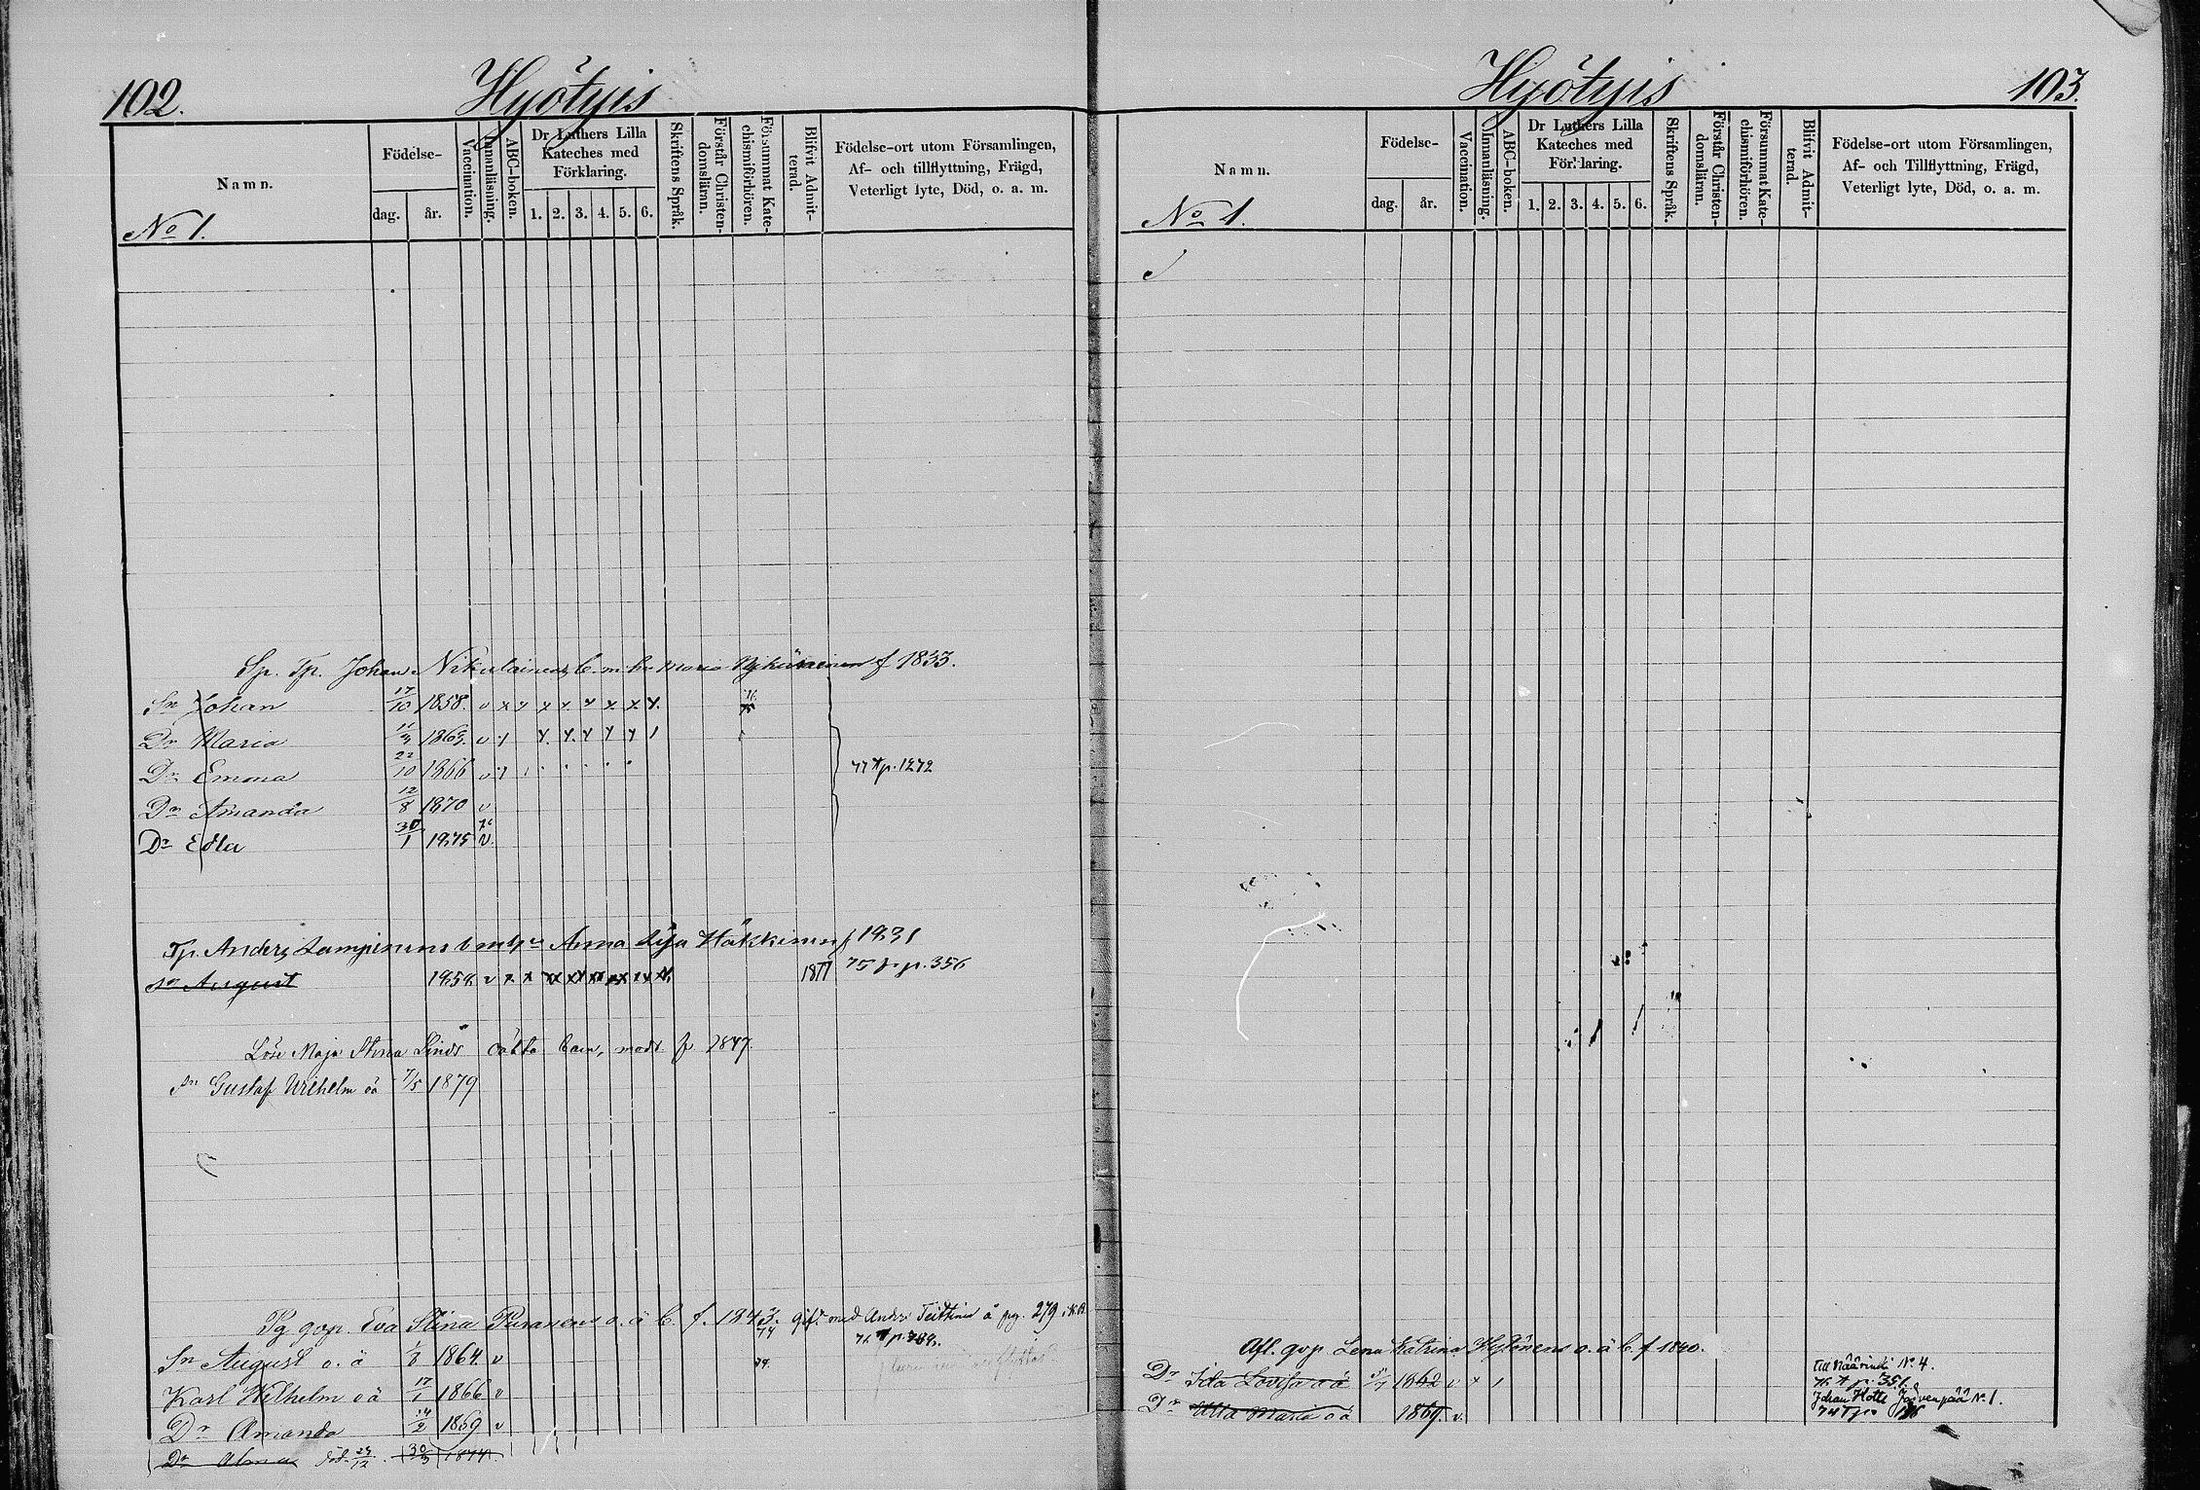 102.
Hyötyis
Namn.
Födelse-
dag.
år.
Vaccination.
Innanläsning.
ABC-boken.
Dr Luthers Lilla
Kateches med
Förklaring.
1. 2. 3. 4. 5. 6.
Skriftens Språk.
Förstår Christen-
domsläran.
Försummat Kate-
chismiförhören.
Blifvit Admit-
terad.
Födelse-ort utom Församlingen,
Af- och tillflyttning, Frägd,
Veterligt lyte, Död, o. a. m.
No 1.
Sp. Tp. Johan b. m. hu Maria f 1833.
Sn Johan 17/10 1858. v
Dr Maria 1863. v
Dr Emma 22/10 1866 v 77 Tp. 1272
Dr Amanda 12/8 1870 v
Dr Edla 30/1 1875 v.
Tp. Anders Lampinens b m hu Anna Lisa Häkkinen f 1831
Sn August 1858 v 1877 75 p. 356
Lös Maja Stina oäkta barn, modr f 1847.
Sn Gustaf Wilhelm oä 7/5 1879
Pg qvp. Eva Stina Puranens o. ä b. f. 1843. gift med Andr. Teittinen å pag. 279
Sn August o. ä 1/8 1864. v 74.
Karl Wilhelm oä 17/1 1866 v
Dr Amanda 14/2 1869 v
Dr Alma död. 29/12. 30/3 1874.
Hyötyis
103.
Namn.
Födelse-
dag.
år.
Vaccination.
Innanläsning.
ABC-boken.
Dr Luthers Lilla
Kateches med
Förklaring.
1. 2. 3. 4. 5. 6.
Skriftens Språk.
Förstår Christen-
domsläran.
Försummat Kate-
chismiförhören.
Blifvit Admit-
terad.
Födelse-ort utom Församlingen,
Af- och Tillflyttning, Frägd,
Veterligt lyte, Död, o. a. m.
No 1.
Afl. qvp Lena Katrina Hytönens o. ä b. f 1840.
Dr Ida Lovisa oä 1862 v till Näärinki No 4.
76 Tp. 351.
Dr Ulla Maria oä 1869. v. Johan Hotti Järvenpää No 1.